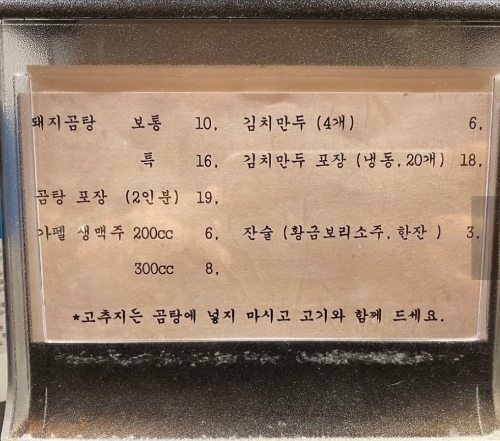 돼지곰탕 보통 10, 김치만두 (4개) 6,
특 16, 김치만두 포장 (냉동, 20개) 18,
곰탕 포장 (2인분) 19,
아펠 생맥주 200cc 6, 잔술 (황금보리소주, 한잔 ) 3,
300cc 8,
*고추지는 곰탕에 넣지 마시고 고기와 함께 드세요.